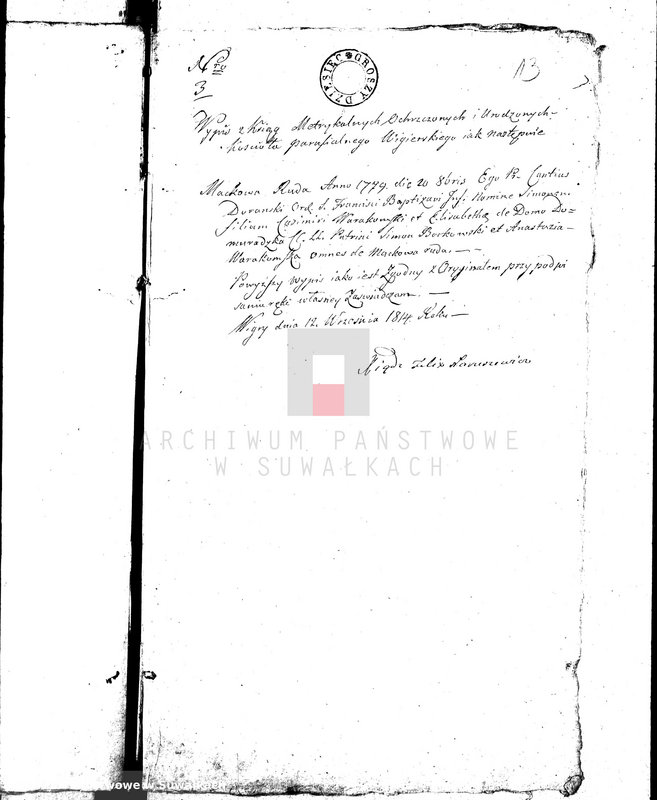 Nro
3
DZIESIĘC GROSZY
13
Wypis z Xiąg Metrykalnych Ochrzczonych i Urodzonych
kościoła parafialnego Wigierskiego iak następuie
Mackowa Ruda Anno 1779. die 20 8bris Ego Pr. Cantius
Ord. S. Francisci Baptizavi Inf. Nomine Simonem
Filium Casimiri Warakomski et Elisabethæ de Domo Do-
muradzka CC. LL. Patrini Simon Borkowski et Anastazia
Warakomska omnes de Mackowa ruda. —
Powyższy wypis iako iest Zgodny z Oryginałem przy podpi
saniu ręki własney Zaświadczam. —
Wigry dnia 12. Września 1814. Roku —
Xiądz Felix
ARCHIWUM PAŃSTWOWE
W SUWAŁKACH
wowe w Suwałkach